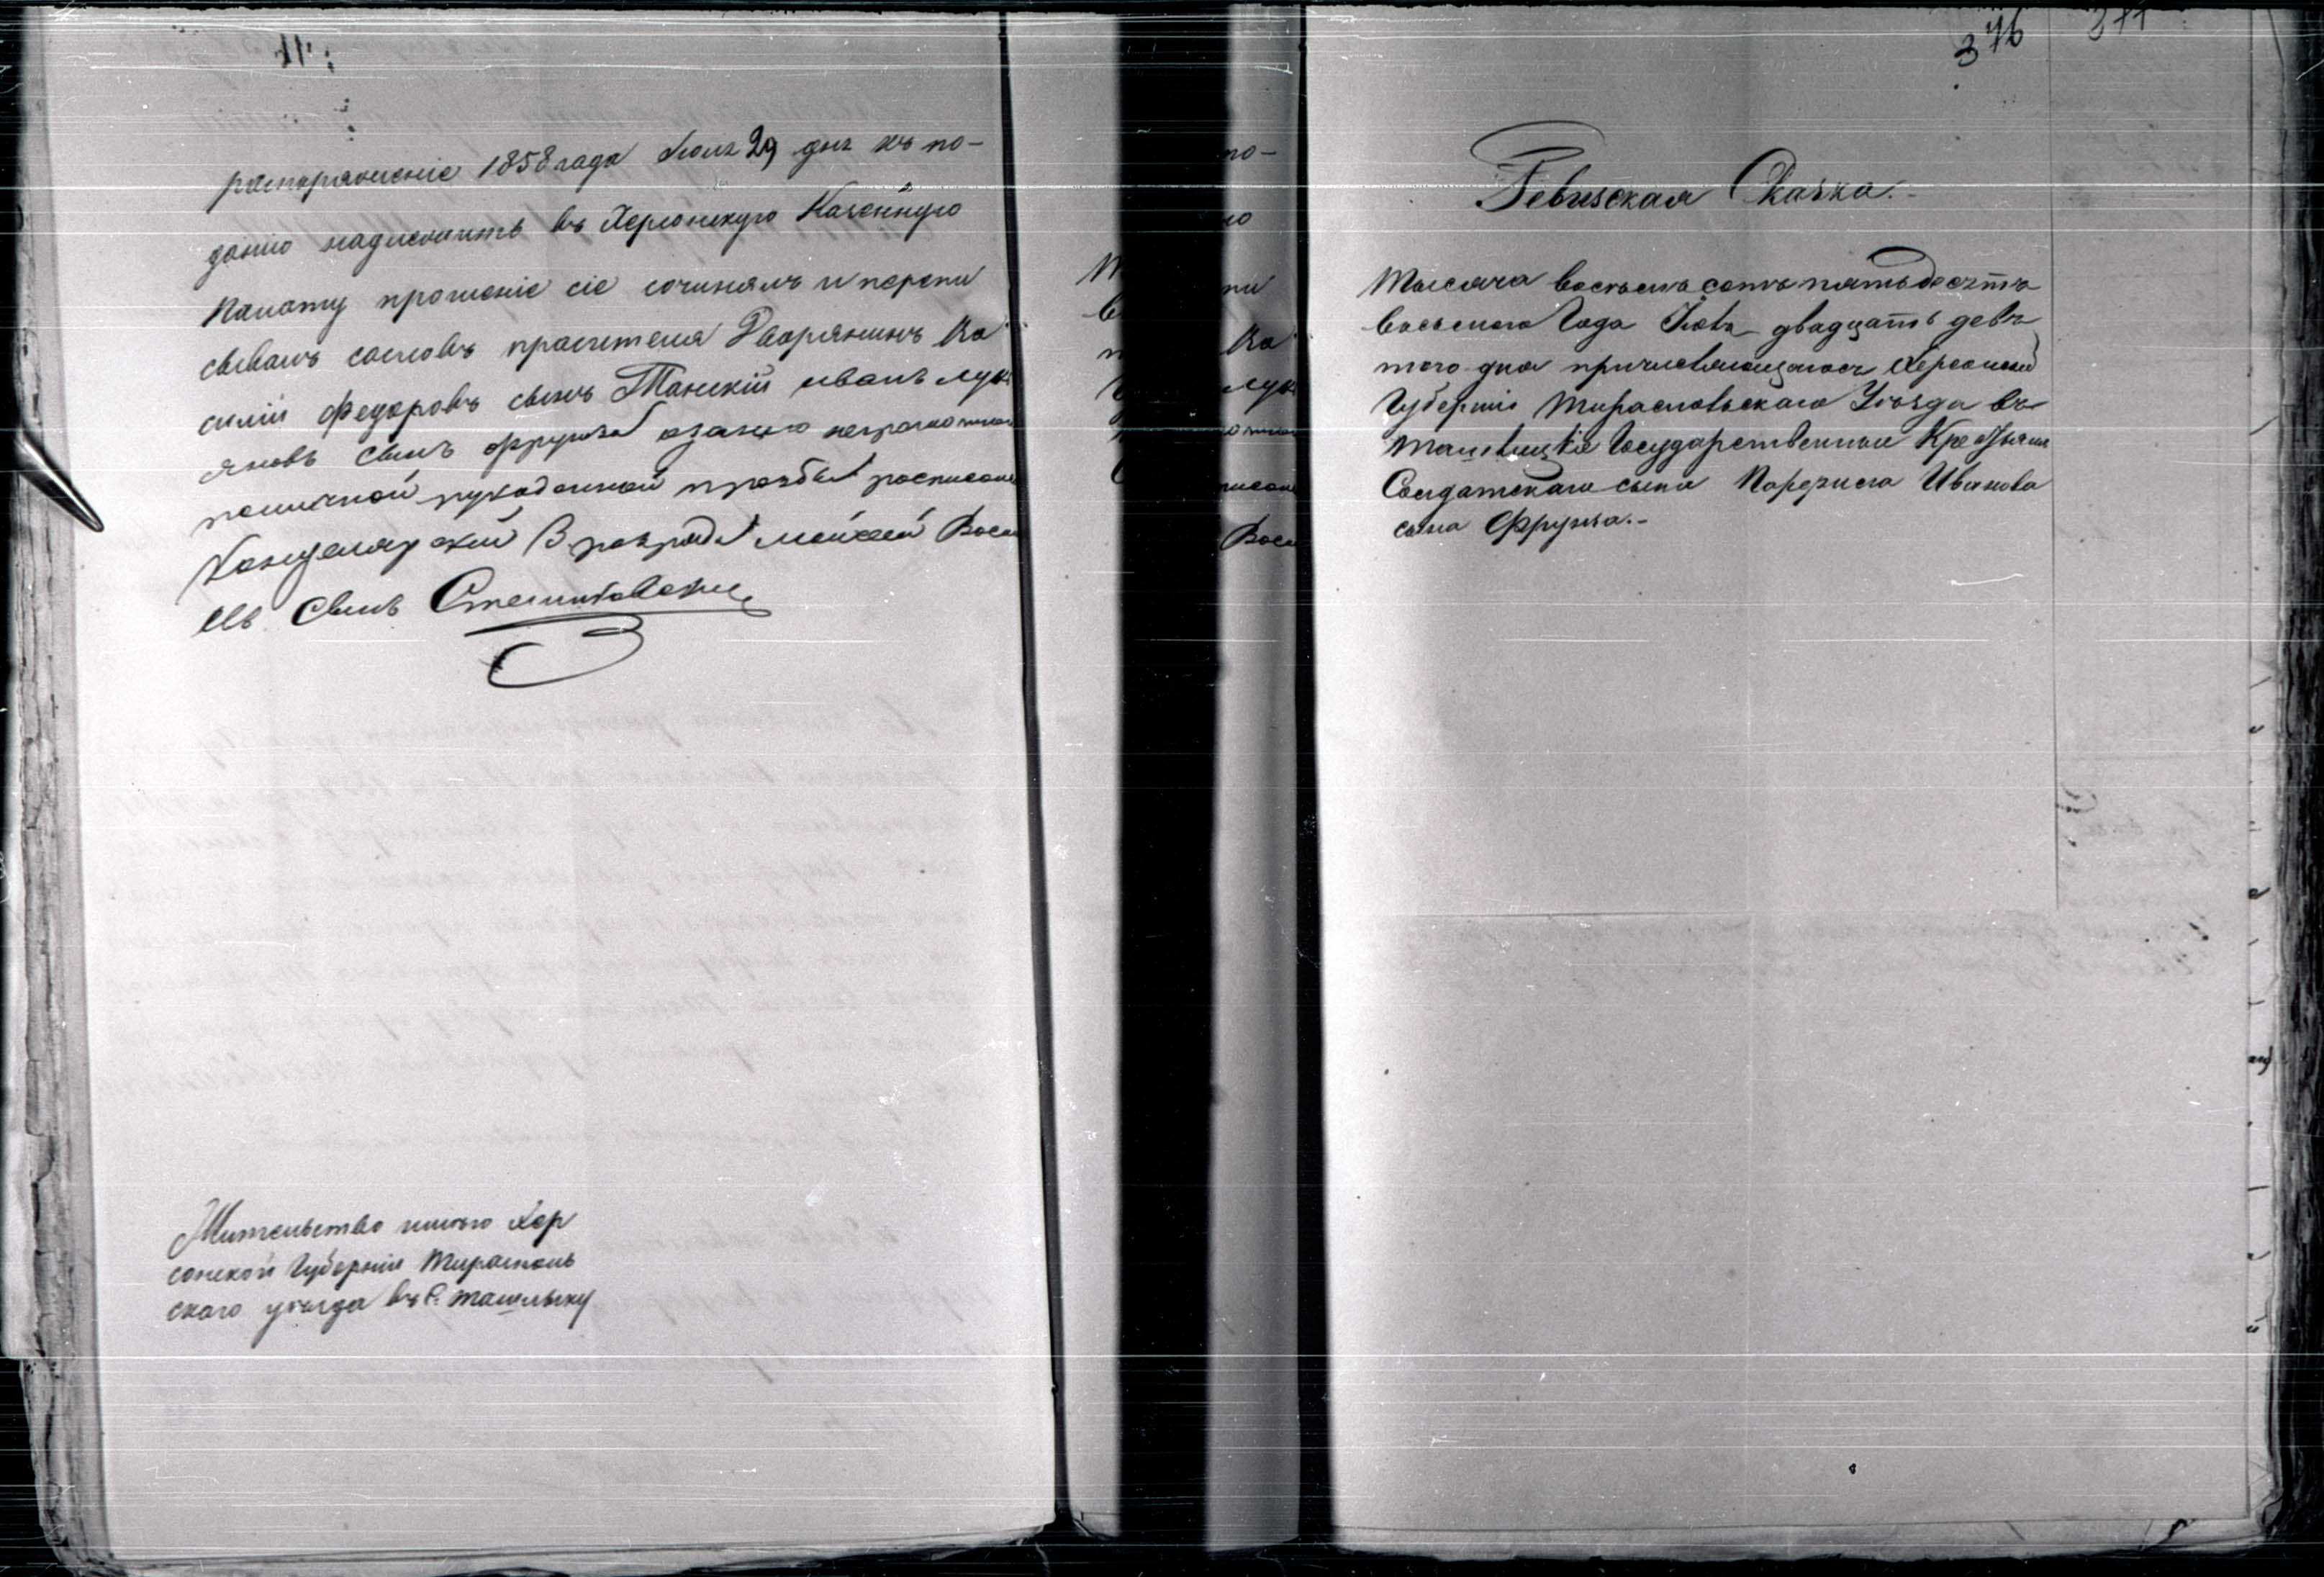 распоряженіе 1858 года Іюля 29 дня къ по-
данію надлежитъ въ Херсонскую Казенную
Палату прошеніе сіе сочинялъ и перепи
сывалъ со словъ просителя Дворянинъ Ва
силій Федоровъ сынъ Танскій иванъ лук
яновъ сынъ фрунза
рукоданной прозбы росписался
Канцелярскій 3 разряда Васи
евъ сынъ
Жительство имѣю Хер
сонской Губерніи Тираспол
ского уѣзда въ С. ташлыку
376
377
Ревизская Сказка.-
Тысяча восемь сотъ пятьдесятъ
восьмого Года Іюля двадцать девя
того дня причисляющагося Херсонской
Губерніи Тираспольскаго Уѣзда въ
Государственные Крестьяне
Солдатскаго сына Иванова
сына Фрунза.-